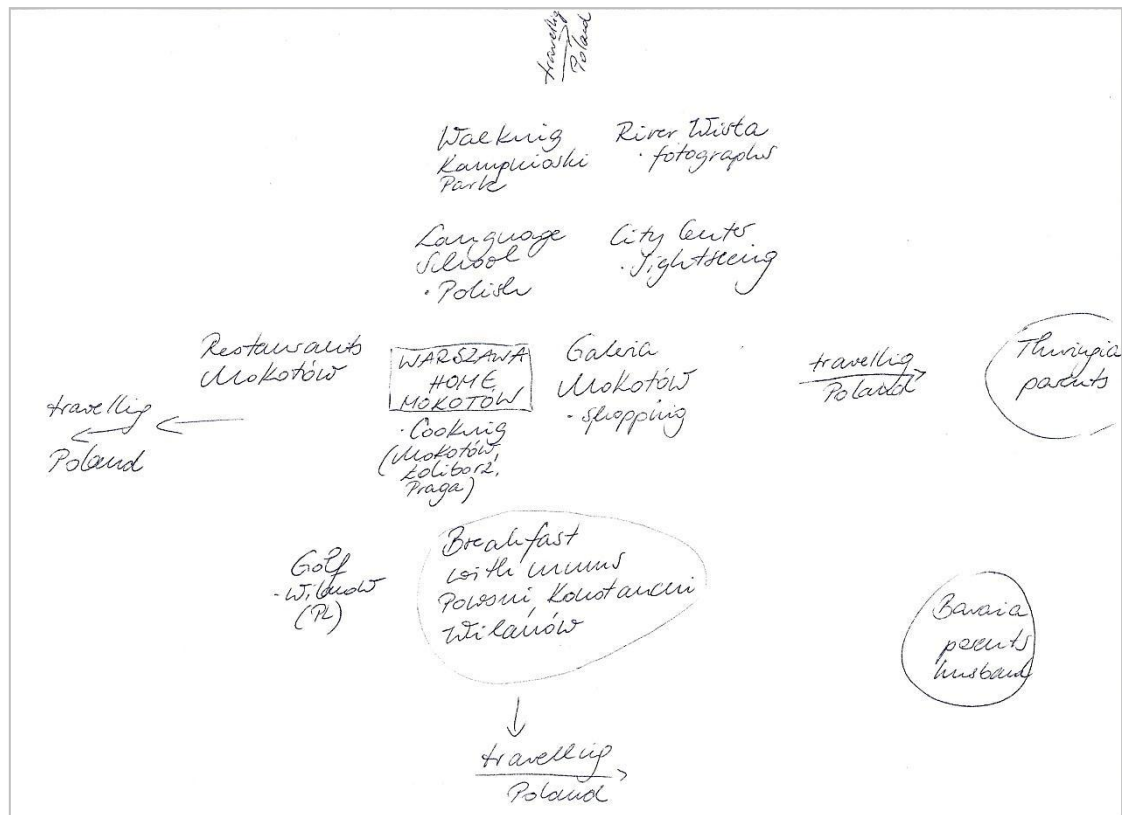 travellig
Poland
Walking
Kampinoski
Park
River Wisła
· fotographs
Language
School
· Polish
City Center
· Sightseeing
Restaurants
Mokotów
WARSZAWA
HOME
MOKOTÓW
· Cooking
(Mokotów,
Żoliborz,
Praga)
Galeria
Mokotów
· shopping
travellig
Poland
Thuringia
parents
travellig
Poland
Golf
· Wilanow
(PL)
Breakfast
with mums
Powsin, Konstancin
Wilanów
Bavaria
parents
husband
travelling
Poland